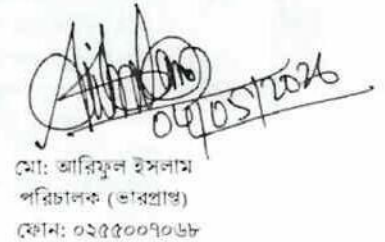 04/05/2026
মো: আরিফুল ইসলাম
পরিচালক (ভারপ্রাপ্ত)
ফোন: ০২৫৫০০৭০৬৮